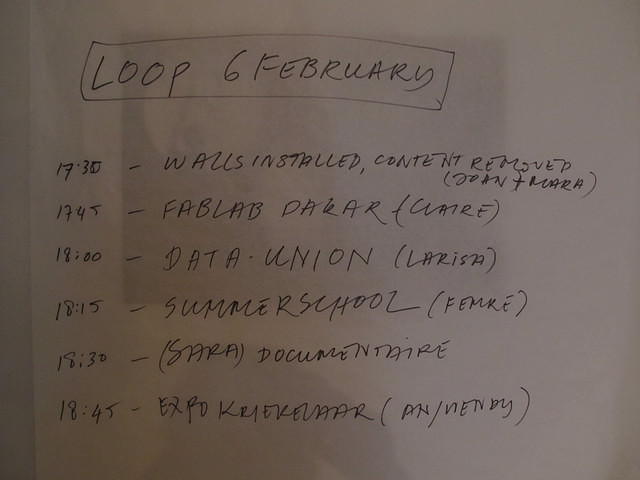 LOOP 6 FEBRUARY
17:35 - WALLS INSTALLED, CONTENT REMOVED
(JOAN + MARA)
1745 - FABLAB DAKAR (CLAIRE)
18:00 - DATA-UNION (LARISA)
18:15 - SUMMERSCHOOL (FEMKE)
18:30 - (SARA) DOCUMENTAIRE
18:45 - EXPO KRIEKELAAR (AN/WENDY)